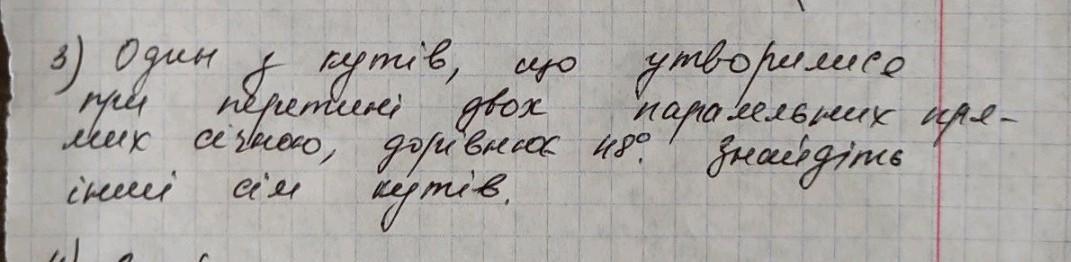 3) Один з кутів, що утворилися
при перетині двох паралельних пря-
мих січною, дорівнює 48°. Знайдіть
інші сім кутів.